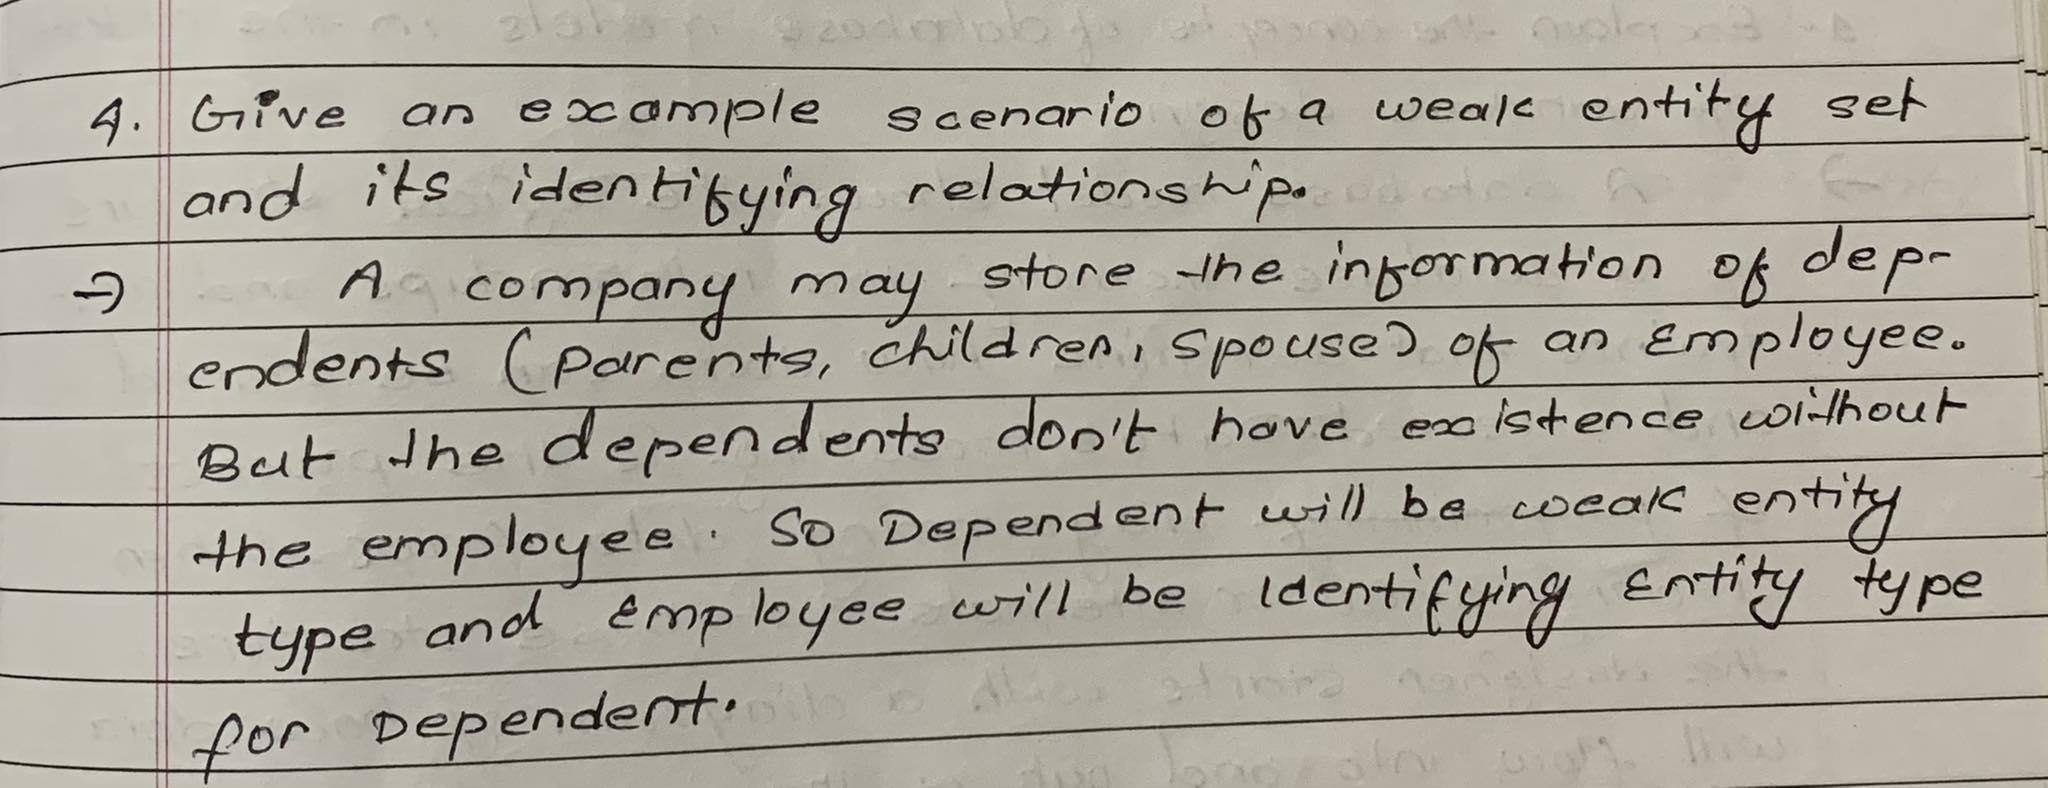 4. Give an example scenario of a weak entity set
and its identifying relationship.
→ A company may store the information of dep-
endents (parents, children, spouse) of an Employee.
But the dependents don't have existence without
the employee. So Dependent will be weak entity
type and Employee will be Identifying Entity type
for Dependent.